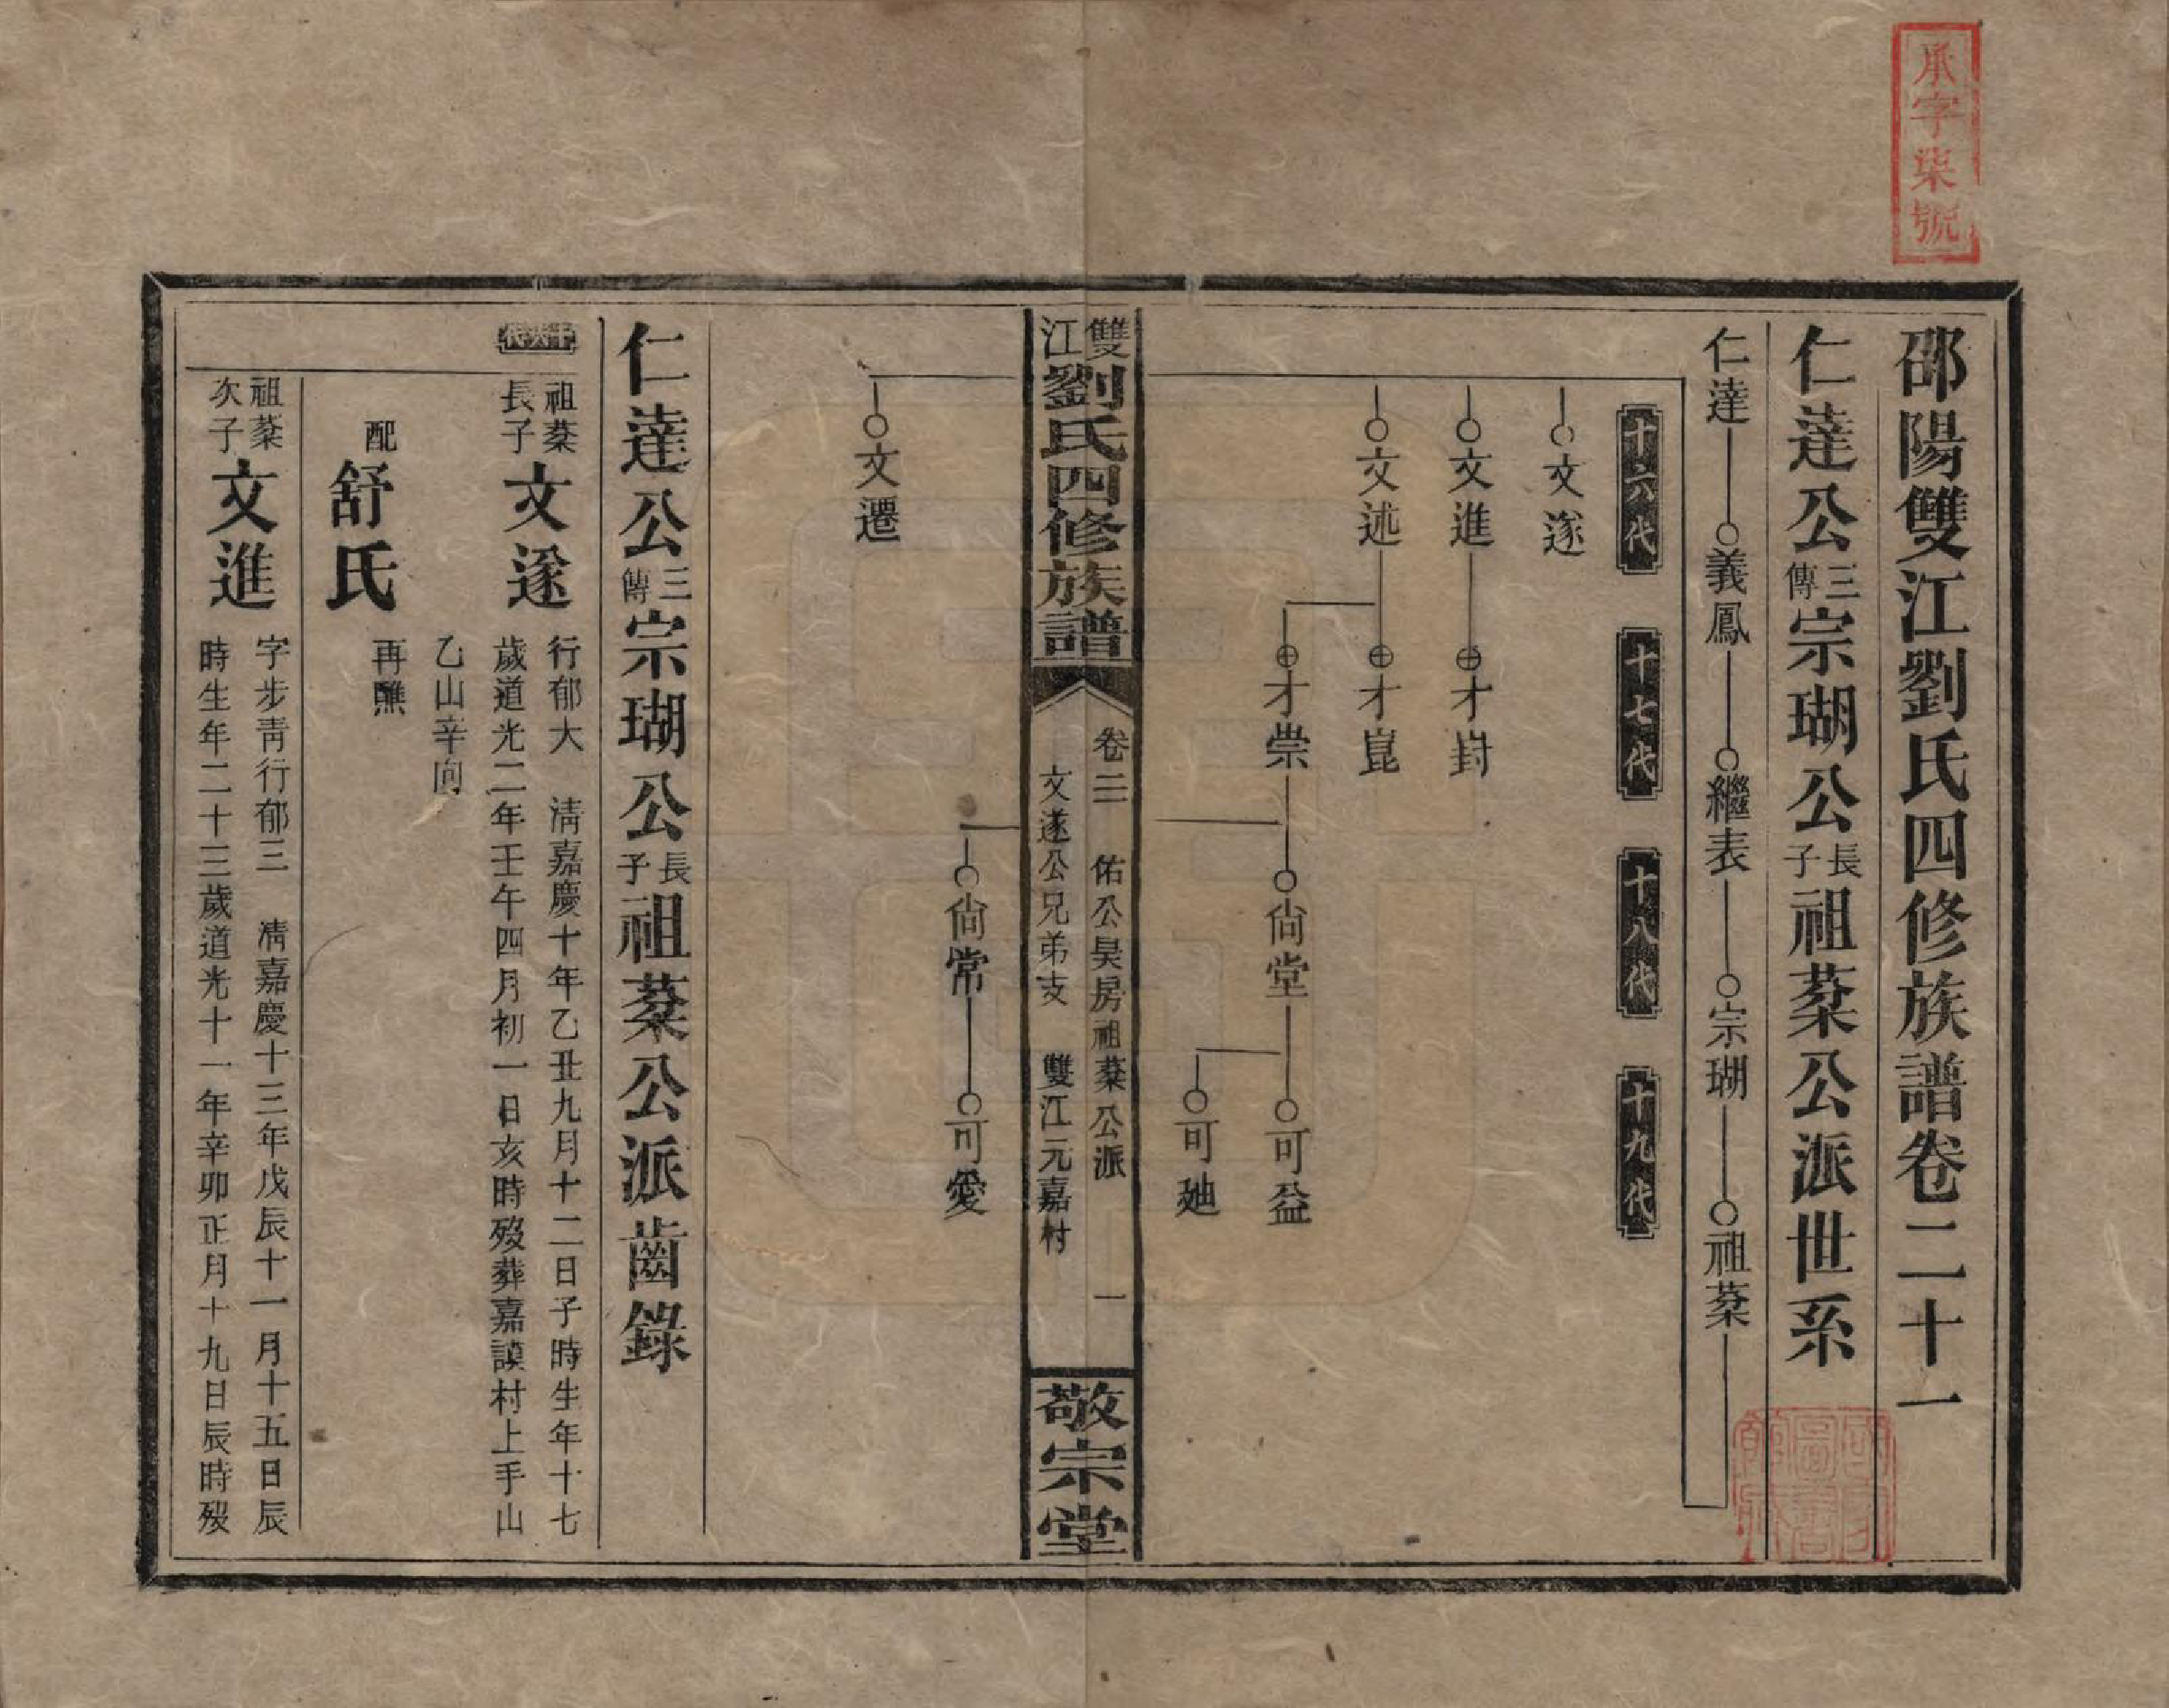 承字柒號
邵陽雙江劉氏四修族譜卷二十一
仁達公三傳宗瑚公長子祖棻公派世系
仁達 義鳳 繼表 宗瑚 祖棻
十六代 十七代 十八代 十九代
文遂
文進 才封
文述 才崑
才崇 尙堂 可益
可廸
雙江劉氏四修族譜
卷二 佑公昊房祖棻公派 一
文遂公兄弟支 雙江元嘉村
敬宗堂
尙常 可愛
文遷
仁達公三傳宗瑚公長子祖棻公派齒錄
十六代
祖棻長子 文遂 行郁大 淸嘉慶十年乙丑九月十二日子時生年十七
歲道光二年壬午四月初一日亥時歿葬嘉謨村上手山
乙山辛向
配 舒氏 再醮
祖棻次子 文進 字步靑行郁三 淸嘉慶十三年戊辰十一月十五日辰
時生年二十三歲道光十一年辛卯正月十九日辰時歿